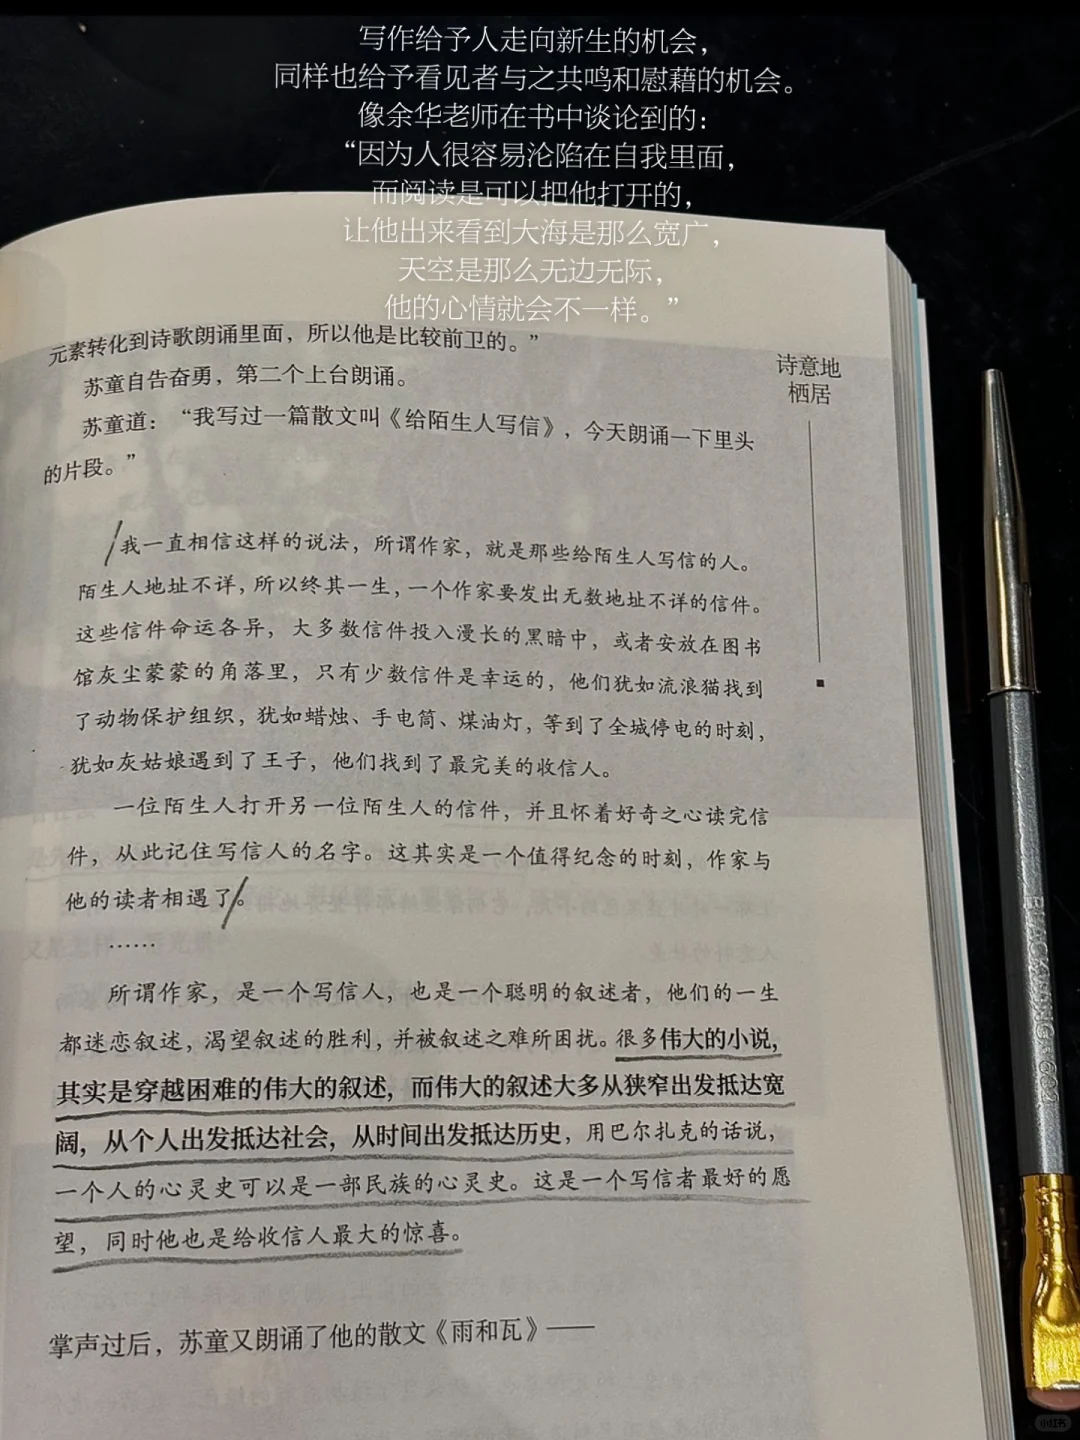 写作给予人走向新生的机会，
同样也给予看见者与之共鸣和慰藉的机会。
像余华老师在书中谈论到的：
“因为人很容易沦陷在自我里面，
而阅读是可以把他打开的，
让他出来看到大海是那么宽广，
天空是那么无边无际，
他的心情就会不一样。”
元素转化到诗歌朗诵里面，所以他是比较前卫的。”
苏童自告奋勇，第二个上台朗诵。
苏童道：“我写过一篇散文叫《给陌生人写信》，今天朗诵一下里头
的片段。”
诗意地
栖居
我一直相信这样的说法，所谓作家，就是那些给陌生人写信的人。
陌生人地址不详，所以终其一生，一个作家要发出无数地址不详的信件。
这些信件命运各异，大多数信件投入漫长的黑暗中，或者安放在图书
馆灰尘蒙蒙的角落里，只有少数信件是幸运的，他们犹如流浪猫找到
了动物保护组织，犹如蜡烛、手电筒、煤油灯，等到了全城停电的时刻，
犹如灰姑娘遇到了王子，他们找到了最完美的收信人。
一位陌生人打开另一位陌生人的信件，并且怀着好奇之心读完信
件，从此记住写信人的名字。这其实是一个值得纪念的时刻，作家与
他的读者相遇了。
……
所谓作家，是一个写信人，也是一个聪明的叙述者，他们的一生
都迷恋叙述，渴望叙述的胜利，并被叙述之难所困扰。很多伟大的小说，
其实是穿越困难的伟大的叙述，而伟大的叙述大多从狭窄出发抵达宽
阔，从个人出发抵达社会，从时间出发抵达历史，用巴尔扎克的话说，
一个人的心灵史可以是一部民族的心灵史。这是一个写信者最好的愿
望，同时他也是给收信人最大的惊喜。
掌声过后，苏童又朗诵了他的散文《雨和瓦》——
BLACKWING 602
小红书